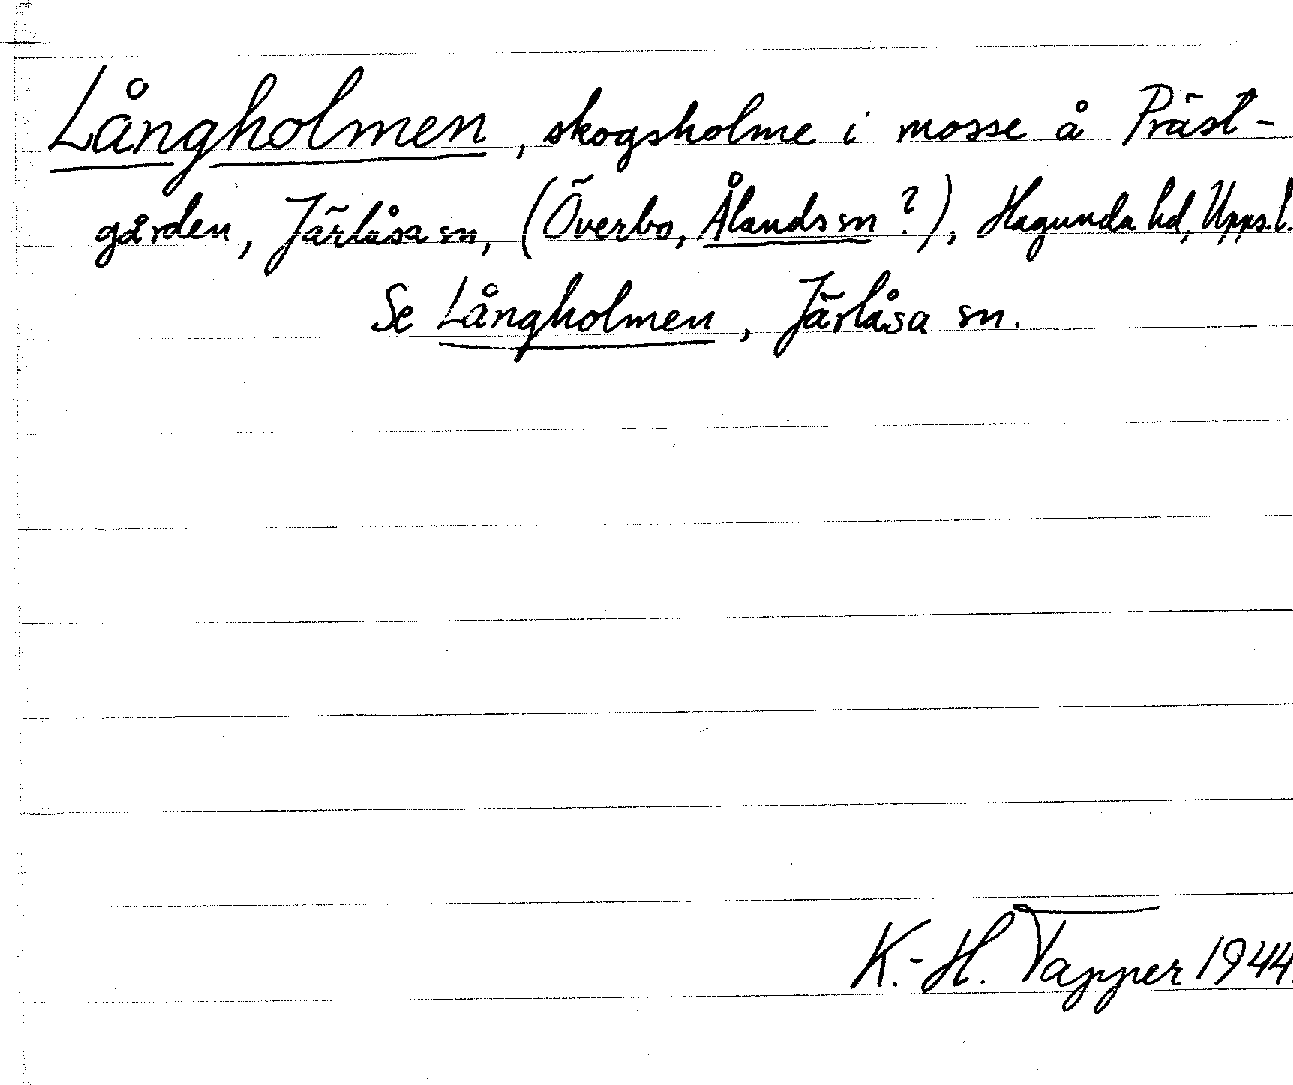 Långholmen, skogsholme i mosse å Präst-
gården, Järlåsa sn, (Överbo, Ålands sn?), Hagunda hd, Upps. l.
Se Långholmen, Järlåsa sn.
K.-H. Tapper 1944.